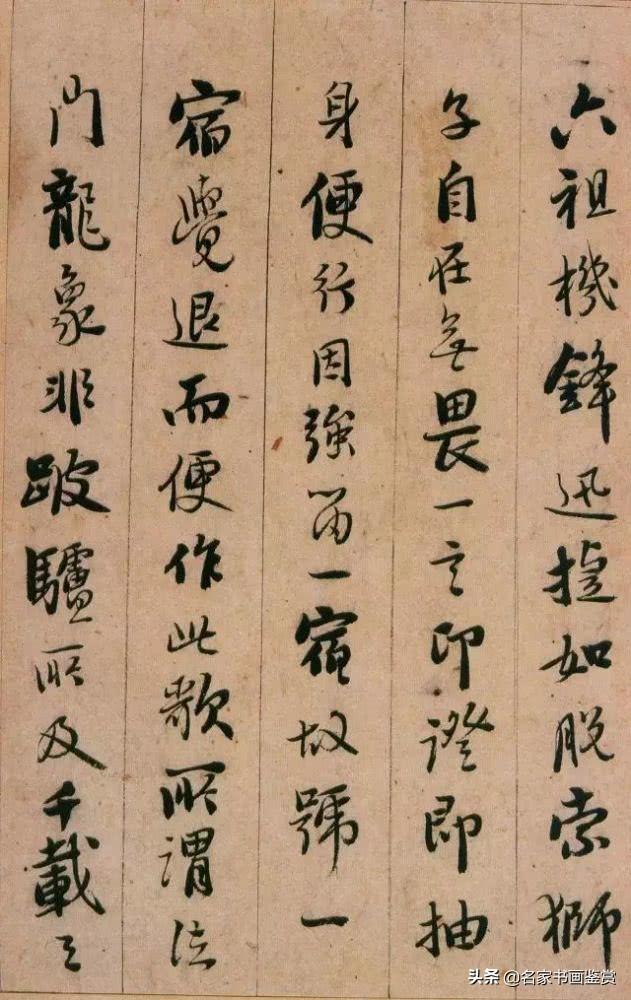 六祖機鋒迅捷如脱索獅
子自在無畏一言印證即抽
身便行因強留一宿故號一
宿覺退而便作此歌所謂法
門龍象非跛驢所及千載之
头条 @名家书画鉴赏